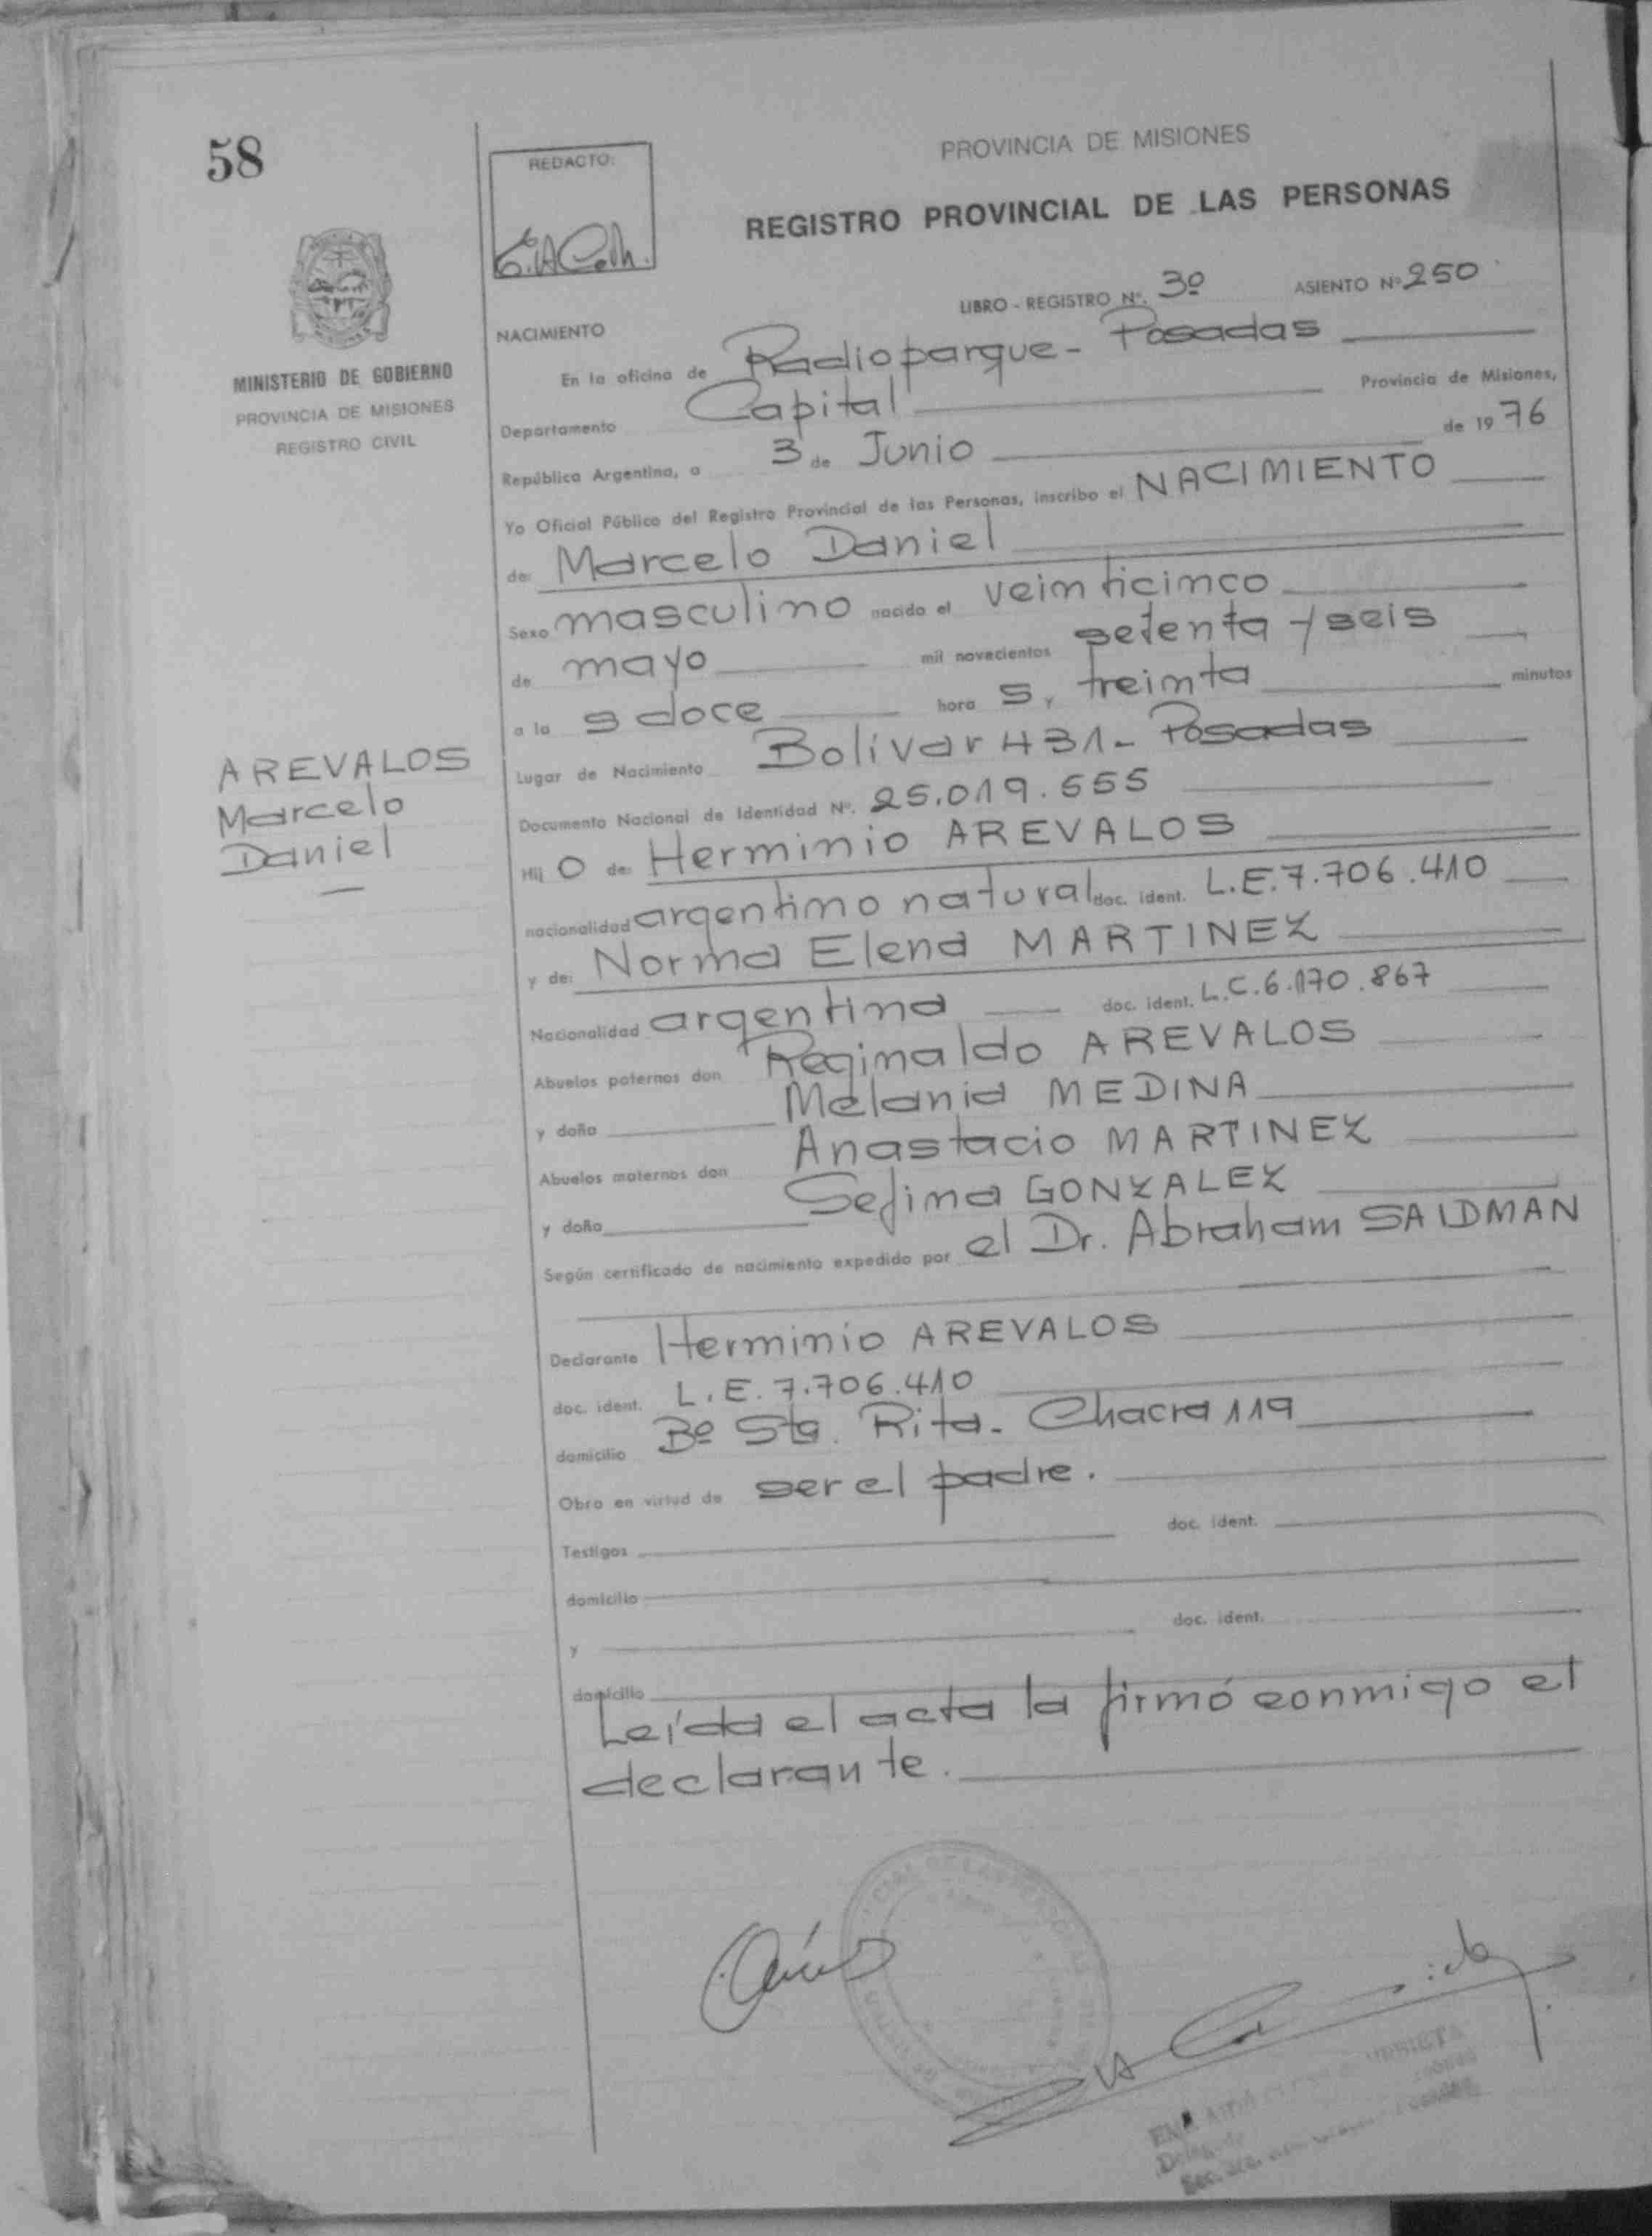 58
REDACTO:
PROVINCIA DE MISIONES
REGISTRO PROVINCIAL DE LAS PERSONAS
LIBRO - REGISTRO Nº. 3º ASIENTO Nº 250
MINISTERIO DE GOBIERNO
PROVINCIA DE MISIONES
REGISTRO CIVIL
AREVALOS
Marcelo
Daniel
NACIMIENTO
En la oficina de Radioparque - Posadas
Departamento Capital Provincia de Misiones,
República Argentina, a 3 de Junio de 1976
Yo Oficial Público del Registro Provincial de las Personas, inscribo el NACIMIENTO
de: Marcelo Daniel
Sexo masculino nacido el veinticinco
de mayo mil novecientos setenta y seis
a la s doce hora s y treinta minutos
Lugar de Nacimiento Bolívar 431 - Posadas
Documento Nacional de Identidad Nº. 25.019.555
Hij o de: Herminio AREVALOS
nacionalidad argentino natural doc. ident. L.E. 7.706.410
y de: Norma Elena MARTINEZ
Nacionalidad argentina doc. ident. L.C. 6.170.867
Abuelos paternos don Reginaldo AREVALOS
y doña Melania MEDINA
Abuelos maternos don Anastacio MARTINEZ
y doña Sefina GONZALEZ
Según certificado de nacimiento expedido por el Dr. Abraham SAIDMAN
Declarante Herminio AREVALOS
doc. ident. L.E. 7.706.410
domicilio Bº Sta. Rita - Chacra 119
Obra en virtud de ser el padre.
Testigos doc. ident.
domicilio
y doc. ident.
domicilio
Leída el acta la firmó conmigo el
declarante.